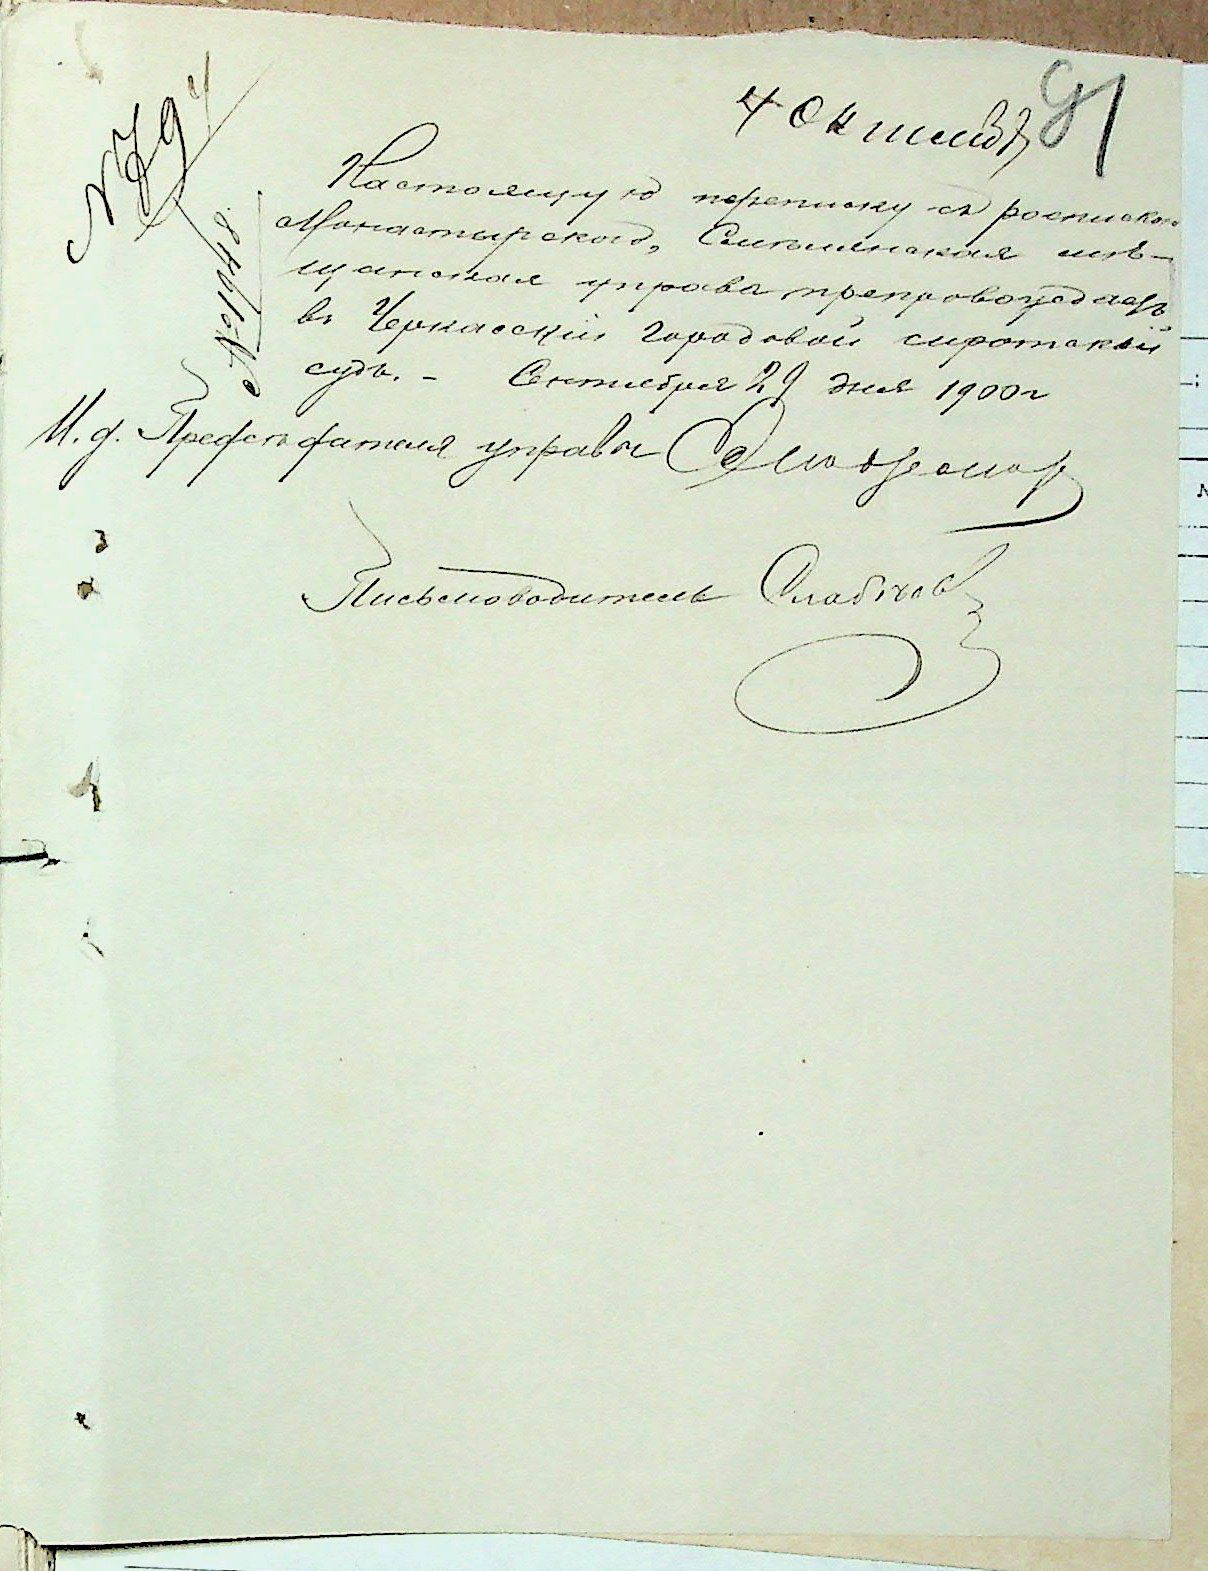 4 Октября
91
№ 794
№ 1948.
Настоящую переписку съ роспискою
Монастырского, Смелянская мѣ-
щанская управа препровождаетъ
въ Черкасскій Городовой сиротскій
судъ. – Сентября 29 дня 1900 г
И. д. Предсѣдателя управы
Письмоводитель